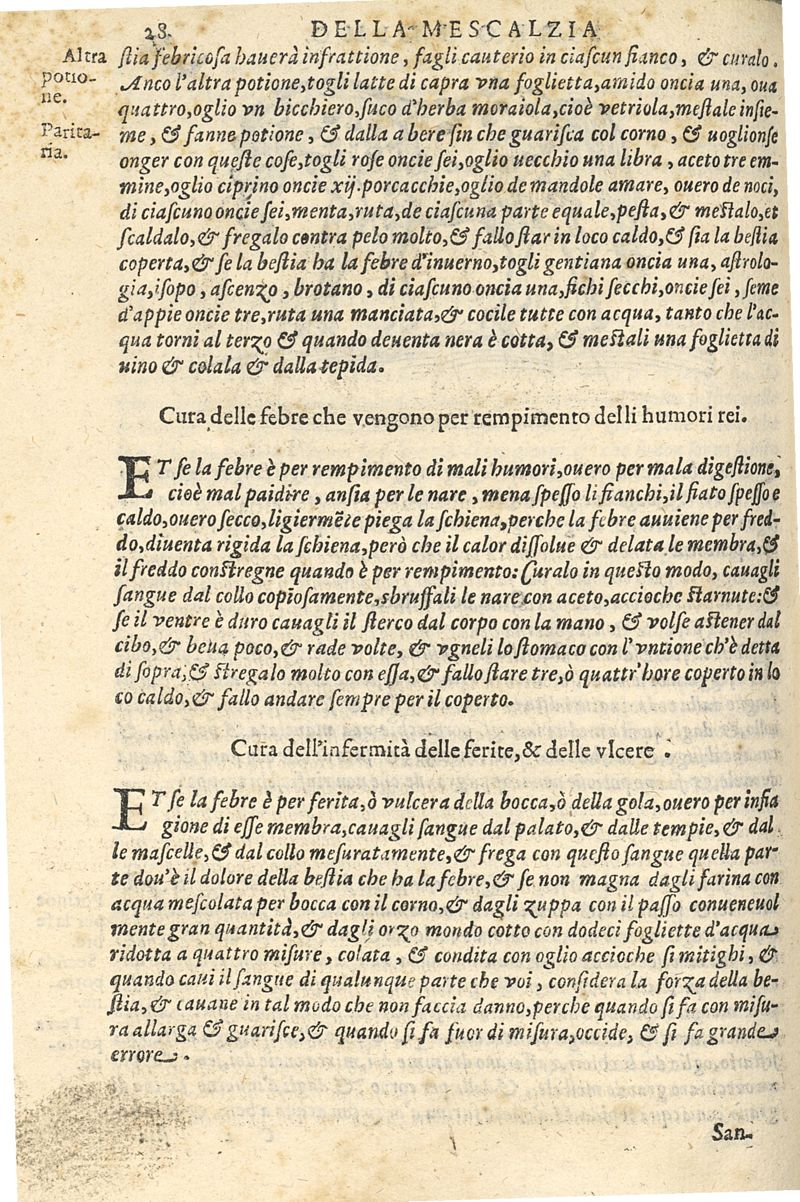 28. DELLA MESCALZIA
Altra potione.
Paritaria.
ſtia febricoſa hauerà infrattione, fagli cauterio in ciaſcun fianco, & curalo.
Anco l'altra potione, togli latte di capra vna foglietta, amido oncia una, oua
quattro, oglio vn bicchiero, ſuco d'herba moraiola, cioè vetriola, meſtale inſie-
me, & fanne potione, & dalla a bere ſin che guariſca col corno, & uoglionſe
onger con queſte coſe, togli roſe oncie ſei, oglio uecchio una libra, aceto tre em-
mine, oglio ciprino oncie xij. porcacchie, oglio de mandole amare, ouero de noci,
di ciaſcuno oncie ſei, menta, ruta, de ciaſcuna parte equale, peſta, & meſtalo, et
ſcaldalo, & fregalo contra pelo molto, & fallo ſtar in loco caldo, & ſia la beſtia
coperta, & ſe la beſtia ha la febre d'inuerno, togli gentiana oncia una, aſtrolo-
gia, iſopo, aſcenzo, brotano, di ciaſcuno oncia una, fichi ſecchi, oncie ſei, ſeme
d'appie oncie tre, ruta una manciata, & cocile tutte con acqua, tanto che l'ac-
qua torni al terzo & quando deuenta nera è cotta, & meſtali una foglietta di
uino & colala & dalla tepida.
Cura delle febre che vengono per rempimento delli humori rei.
ET ſe la febre è per rempimento di mali humori, ouero per mala digeſtione,
cioè mal paidire, anſia per le nare, mena ſpeſſo li fianchi, il fiato ſpeſſo e
caldo, ouero ſecco, ligiermēte piega la ſchiena, perche la febre auuiene per fred-
do, diuenta rigida la ſchiena, però che il calor diſſolue & delata le membra, &
il freddo conſtregne quando è per rempimento: Curalo in queſto modo, cauagli
ſangue dal collo copioſamente, sbruffali le nare con aceto, accioche ſtarnute: &
ſe il ventre è duro cauagli il ſterco dal corpo con la mano, & volſe aſtener dal
cibo, & beua poco, & rade volte, & vgneli lo ſtomaco con l'vntione ch'è detta
di ſopra, & ſtregalo molto con eſſa, & fallo ſtare tre, ò quattr'hore coperto in lo
co caldo, & fallo andare ſempre per il coperto.
Cura dell'infermità delle ferite, & delle vlcere.
ET ſe la febre è per ferita, ò vulcera della bocca, ò della gola, ouero per infia
gione di eſſe membra, cauagli ſangue dal palato, & dalle tempie, & dal
le maſcelle, & dal collo meſuratamente, & frega con queſto ſangue quella par-
te dou'è il dolore della beſtia che ha la febre, & ſe non magna dagli farina con
acqua meſcolata per bocca con il corno, & dagli zuppa con il paſſo conueneuol
mente gran quantità, & dagli orzo mondo cotto con dodeci fogliette d'acqua
ridotta a quattro miſure, colata, & condita con oglio accioche ſi mitighi, &
quando caui il ſangue di qualunque parte che voi, conſidera la forza della be-
ſtia, & cauane in tal modo che non faccia danno, perche quando ſi fa con miſu-
ra allarga & guariſce, & quando ſi fa fuor di miſura, occide, & ſi fa grande
errore.
San-